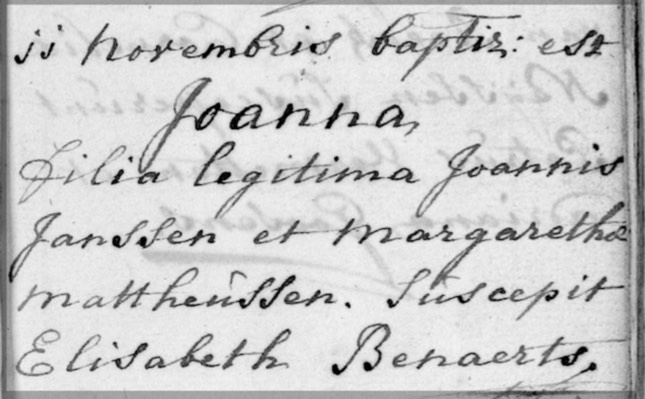 jj novembris baptiz: est
Joanna,
Filia legitima Joannis
Janssen et margarethæ
mattheússen. Súscepit
Elisabeth Benaerts.